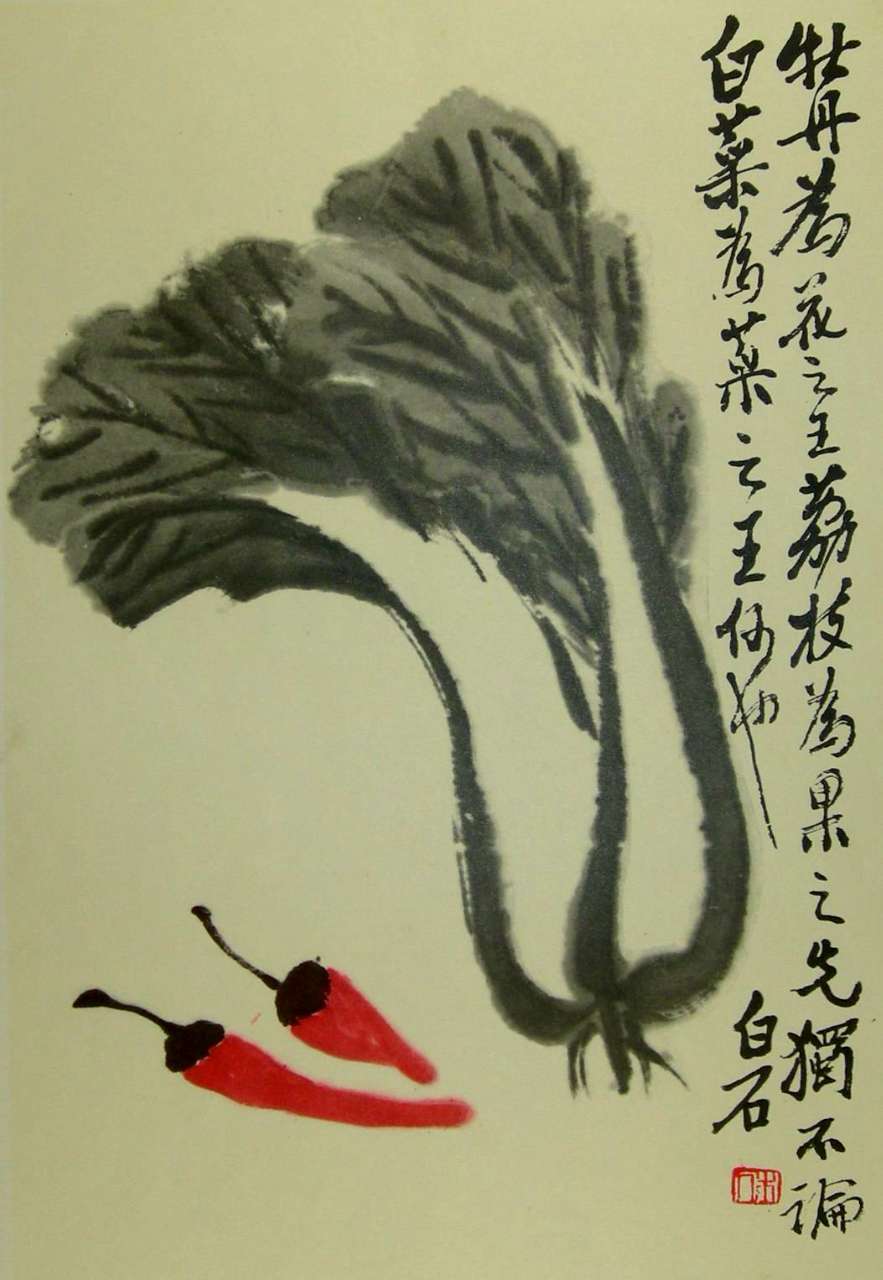 牡丹為花之王荔枝為果之先獨不論
白菜為菜之王何
白石
木人